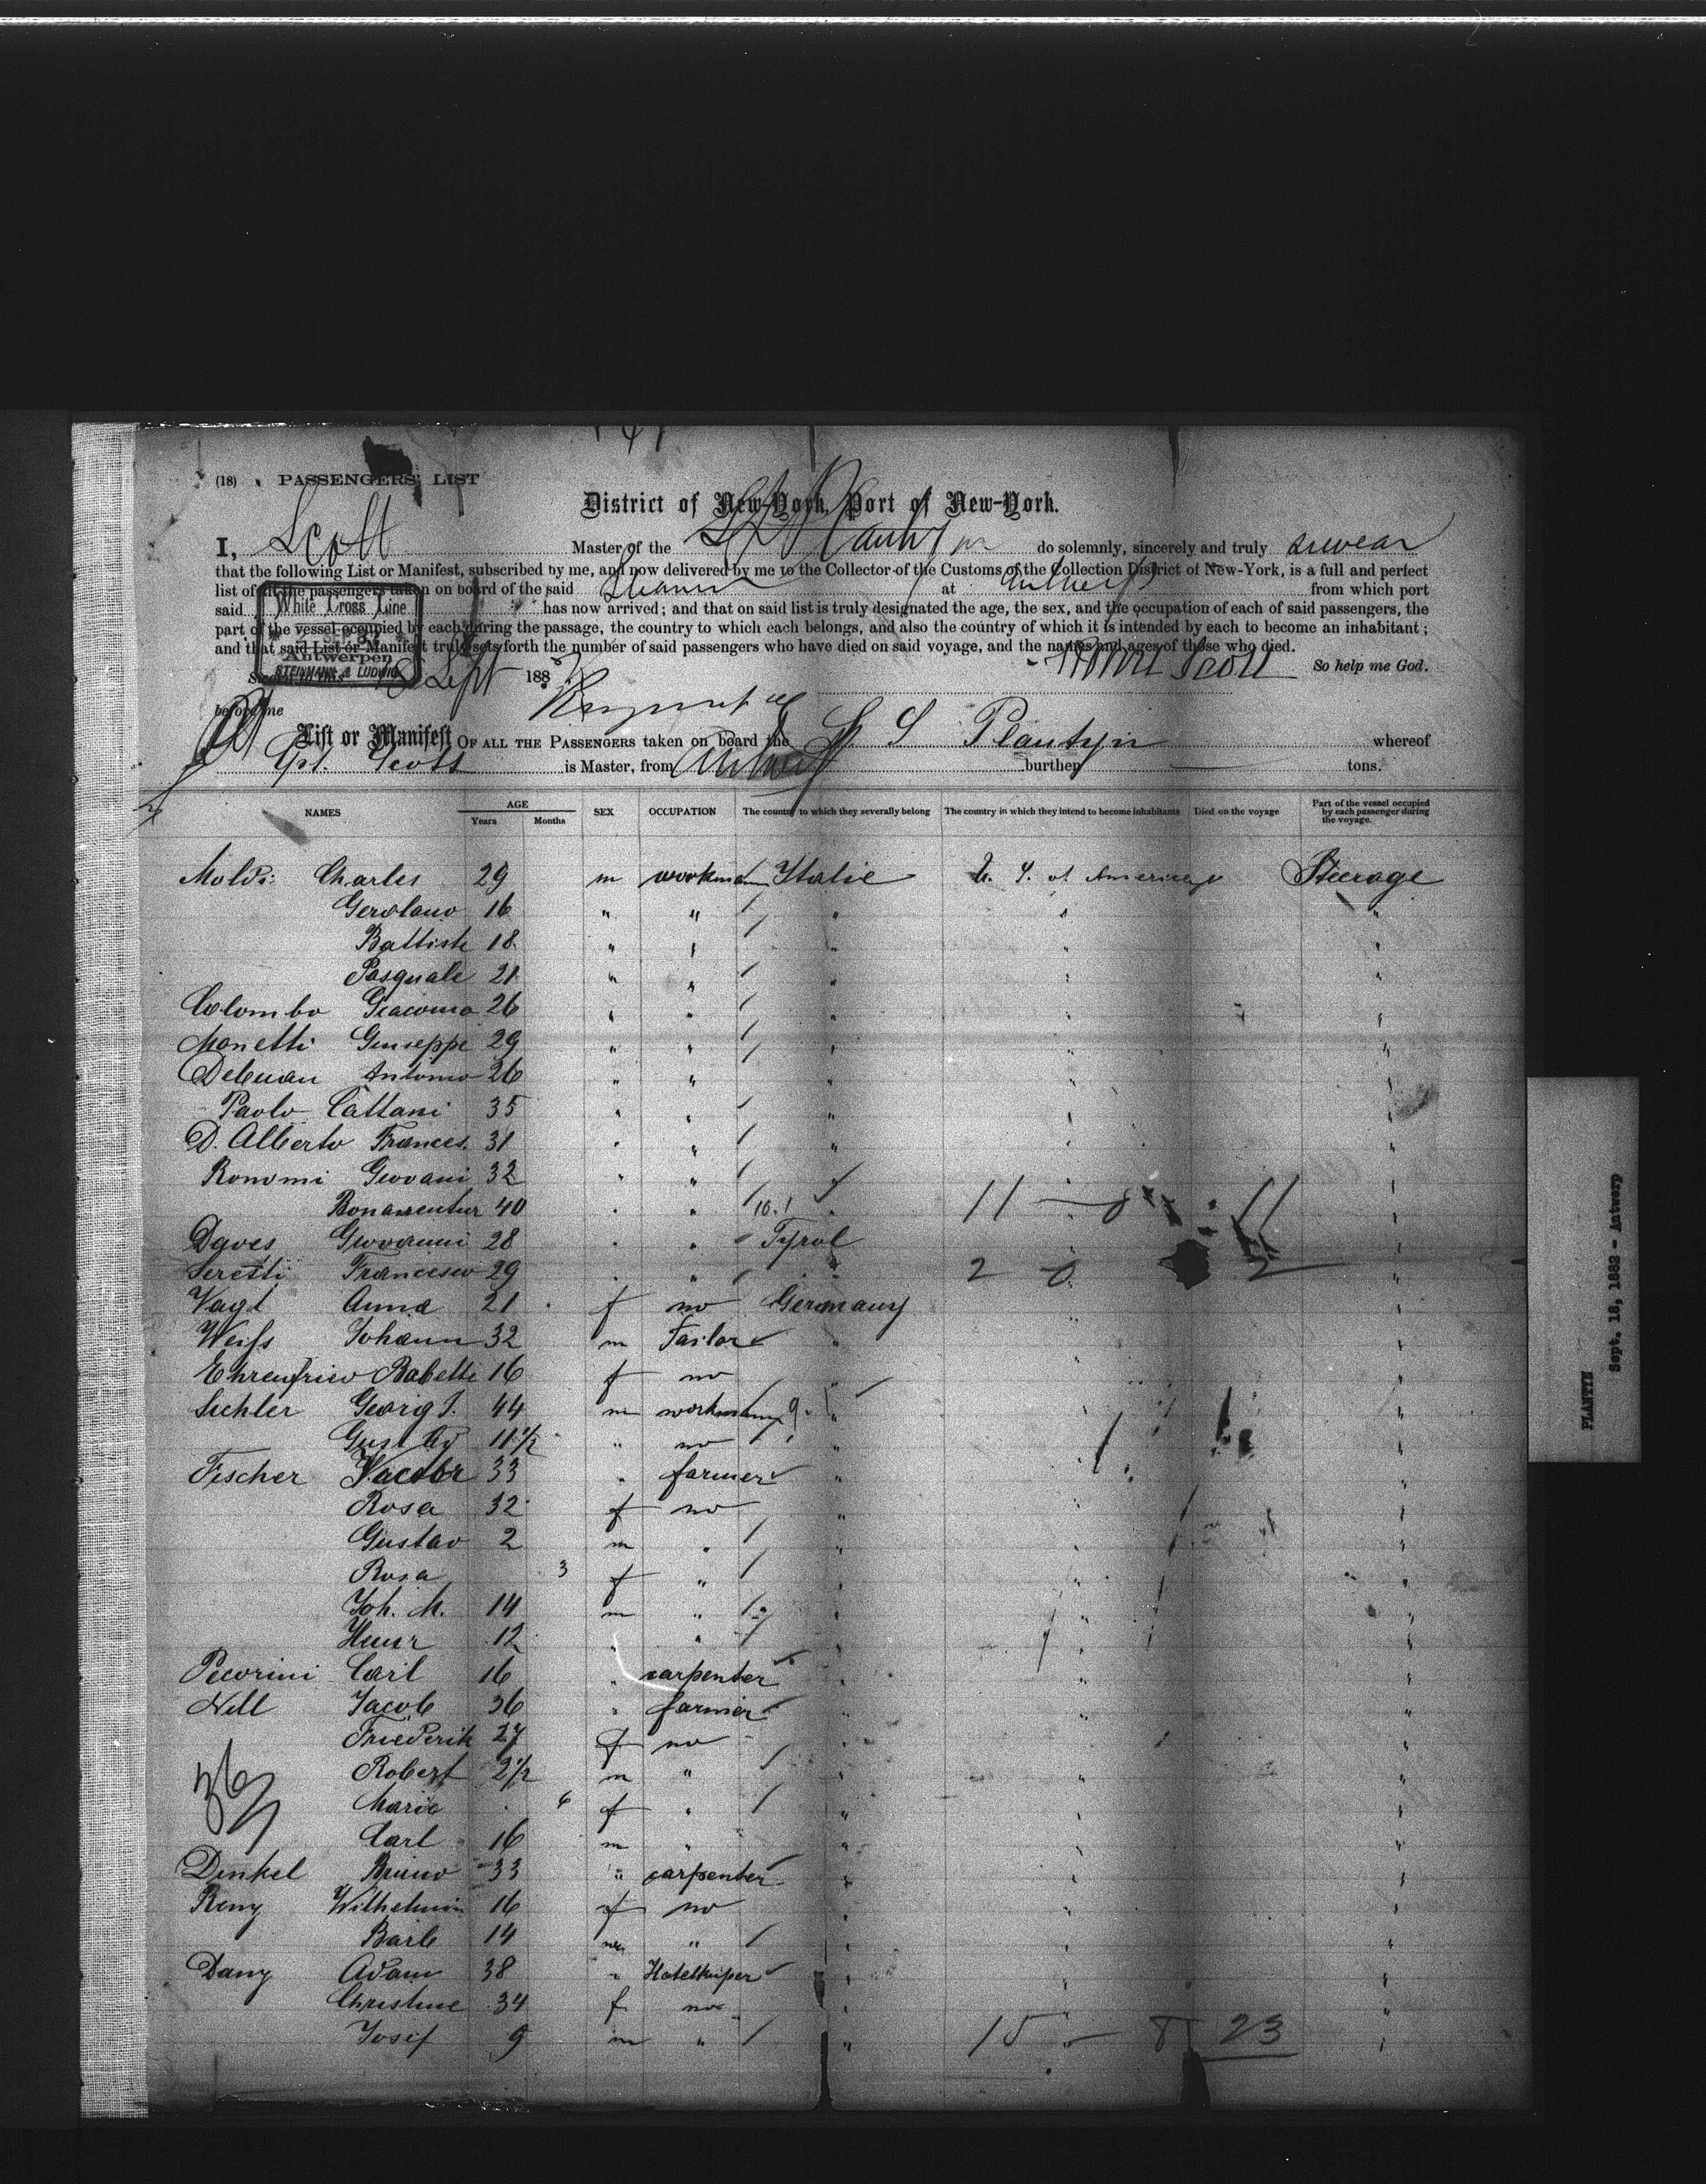 (18) PASSENGERS' LIST
District of New-York, Port of New-York.
I, Scott Master of the do solemnly, sincerely and truly swear
that the following List or Manifest, subscribed by me, and now delivered by me to the Collector of the Customs of the Collection District of New-York, is a full and perfect
list of all the passengers taken on board of the said Steamer at Antwerp from which port
said has now arrived; and that on said list is truly designated the age, the sex, and the occupation of each of said passengers, the
part of the vessel occupied by each during the passage, the country to which each belongs, and also the country of which it is intended by each to become an inhabitant;
and that said List or Manifest truly sets forth the number of said passengers who have died on said voyage, and the names and ages of those who died.
White Cross Line
Antwerpen
STEINMANN & LUDWIG
Sworn to this 18 Sept 1882 Scott So help me God.
before me
List or Manifest OF ALL THE PASSENGERS taken on board the S. S. Plantyn whereof
Cpt. Scott is Master, from Antwerp burthen tons.
NAMES AGE Years Months SEX OCCUPATION The country to which they severally belong The country in which they intend to become inhabitants Died on the voyage Part of the vessel occupied by each passenger during the voyage.
Moldi Charles 29 m workman Italie U. S. of America Steerage
Gerolamo 16 " " " " "
Battiste 18 " " " " "
Pasquale 21 " " " " "
Colombo Giacomo 26 " " " " "
Monetti Giuseppe 29 " " " " "
Antonio 26 " " " " "
Paolo Cattani 35 " " " " "
D. Alberto Frances. 31 " " " " "
Bonomi Giovani 32 " " " " "
Bonaventur 40 " " 10.1 " 11 - 0 11 "
Daves Giovanni 28 " " Tyrol "
Seresti Francesco 29 " " " 2 - 0 2 "
Vagt Anna 21 f no Germany "
Weifs Johann 32 m Tailor " " "
Ehrenfried Babette 16 f no " " "
Sichler Georg J. 44 m workman " " "
Gustav 11 1/2 " no " " "
Fischer Jacob 33 " farmer " " "
Rosa 32 f no " " "
Gustav 2 m " " " "
Rosa 3 f " " " "
Joh. M. 14 m " " " "
Heinr 12 " " " " "
Pecorini Carl 16 " carpenter " " "
Nell Jacob 36 " farmer " " "
Friederik 27 f no " " "
Robert 2 1/2 m " " " "
Marie 6 f " " " "
Carl 16 m " " " "
36
Dinkel Bruno 33 " carpenter " " "
Reny Wilhelmin 16 f no " " "
Barb 14 " " " "
Dany Adam 38 " Hotelkeeper " " "
Christine 34 f no " " "
Josef 9 m " " 15 - 8 23 "
PLANTYN
Sept. 18, 1882 - Antwerp